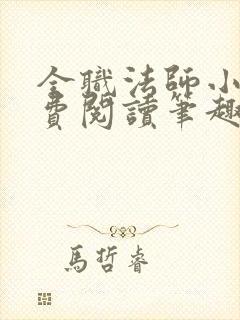 全職法師小
費閱讀筆趣
馬哲睿